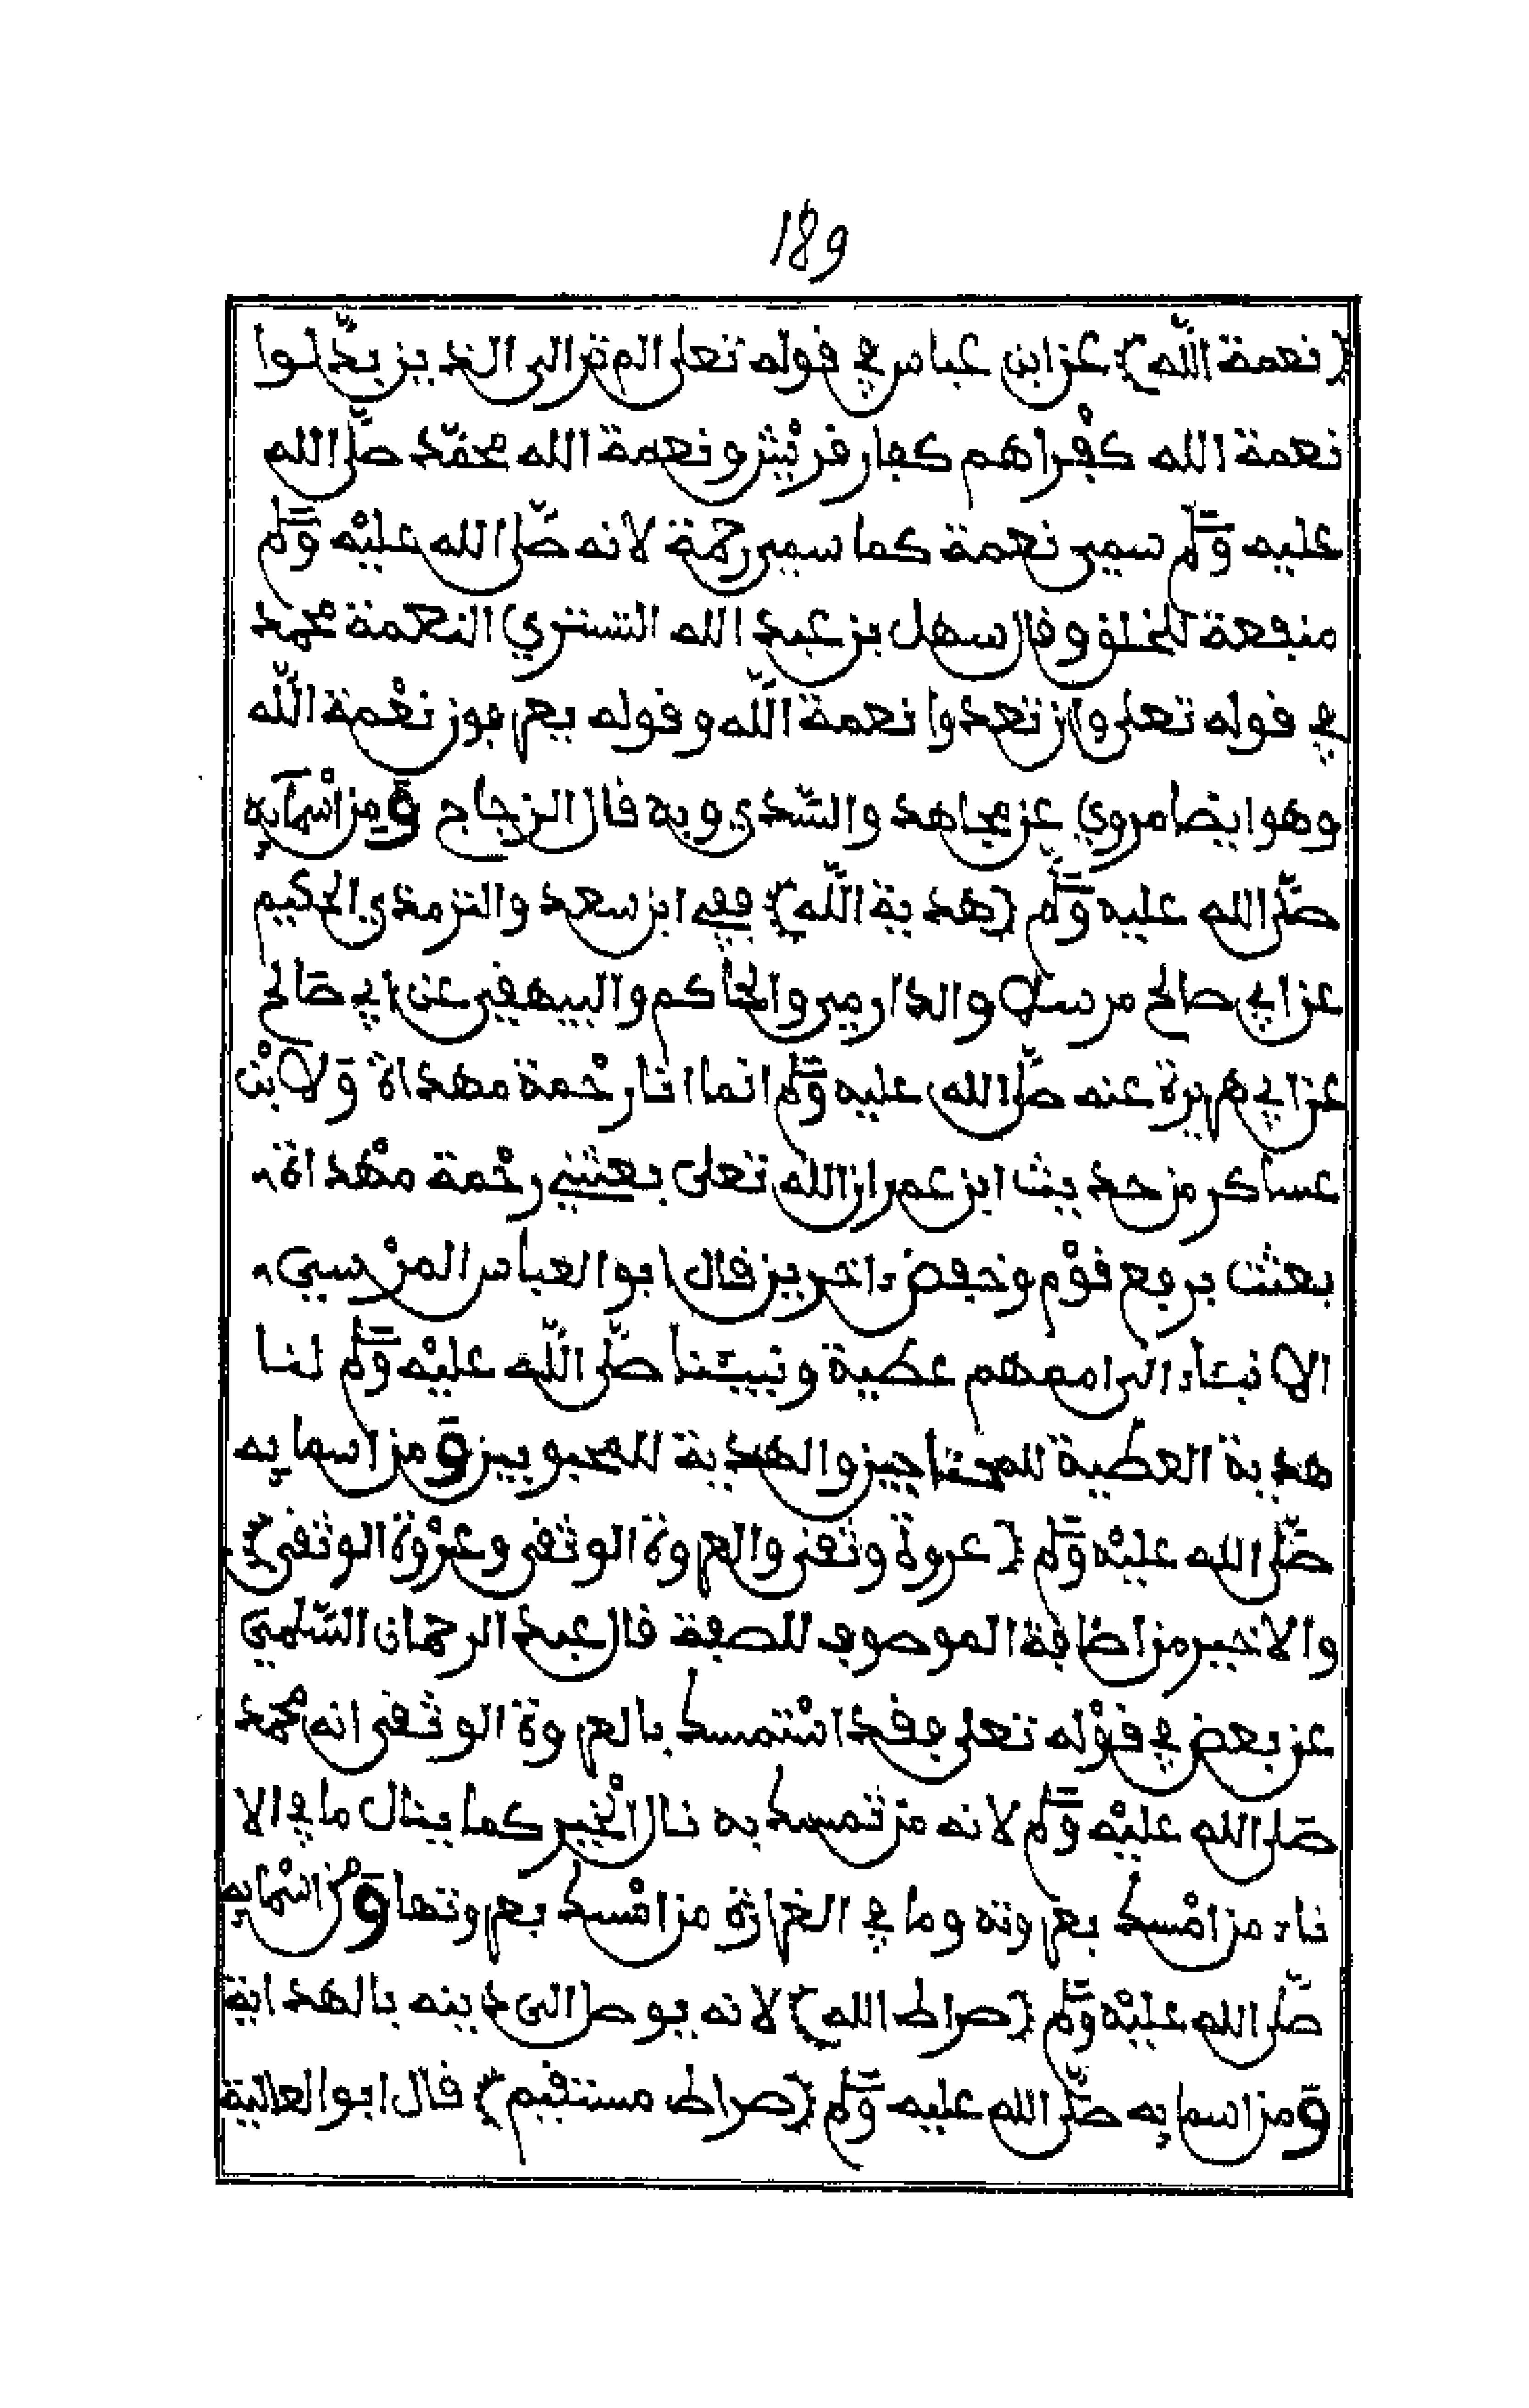 189
(نعمة اللّه) عن ابن عباس في قوله تعلى الم تر الى الذين بدّلوا
نعمة الله كفرا هم كفار قريْش ونعمة الله محمّد صلّى الله
عليه وسلم سمي نعمة كما سمي رحمة لانه صلّى الله عليْه وسلم
منفعة للخلق وقال سهل بن عبد الله التستري النعمة محمد
في قوله تعلى وان تعدوا نعمة اللّه وقوله يعرفون نعْمة اللّه
وهو ايضا مروي عن مجاهد والسّدي وبه قال الزجاج وَمن اسْمآيه
صلّى الله عليه وسلم (هدية اللّه) ففي ابن سعد والترمذي الحكيم
عن ابي صالح مرسلا والدارمي والحاكم والبيهقي عن ابي صالح
عن ابي هريرة عنه صلّى الله عليه وسلم انما انا رحْمة مهداة وَلابْن
عساكر من حديث ابن عمر ان الله تعلى بعثني رحْمة مهْداة
بعثت برفع قوْم وخفض ءاخرين قال ابو العباس المرْسي
الانبياء الى اممهم عطية ونبيّنا صلّى اللّه عليْه وسلم لنا
هدية العطية للمحتاجين والهدية للمحبوبين وَمن اسمايه
صلّى الله عليْه وسلم (عروة وثقى والعروة الوثقى وعرْوة الوثقى)
والاخير من اضافة الموصوف للصفة قال عبد الرحمان السّلمي
عن بعض في قوْله تعلى فقد اسْتمسك بالعروة الوثقى انه محمد
صلى الله عليْه وسلم لانه من تمسك به نال الْخير كما ينال ما في الا
ناء من امْسك بعروته وما في الغرارة من امْسك بعروتها وَمنْ اسْمايه
صلّى الله عليْه وسلم (صراط الله) لانه يوصل الى دينه بالهداية
وَمن اسمايه صلّى الله عليه وسلم (صراط مستقيم) قال ابو العالية